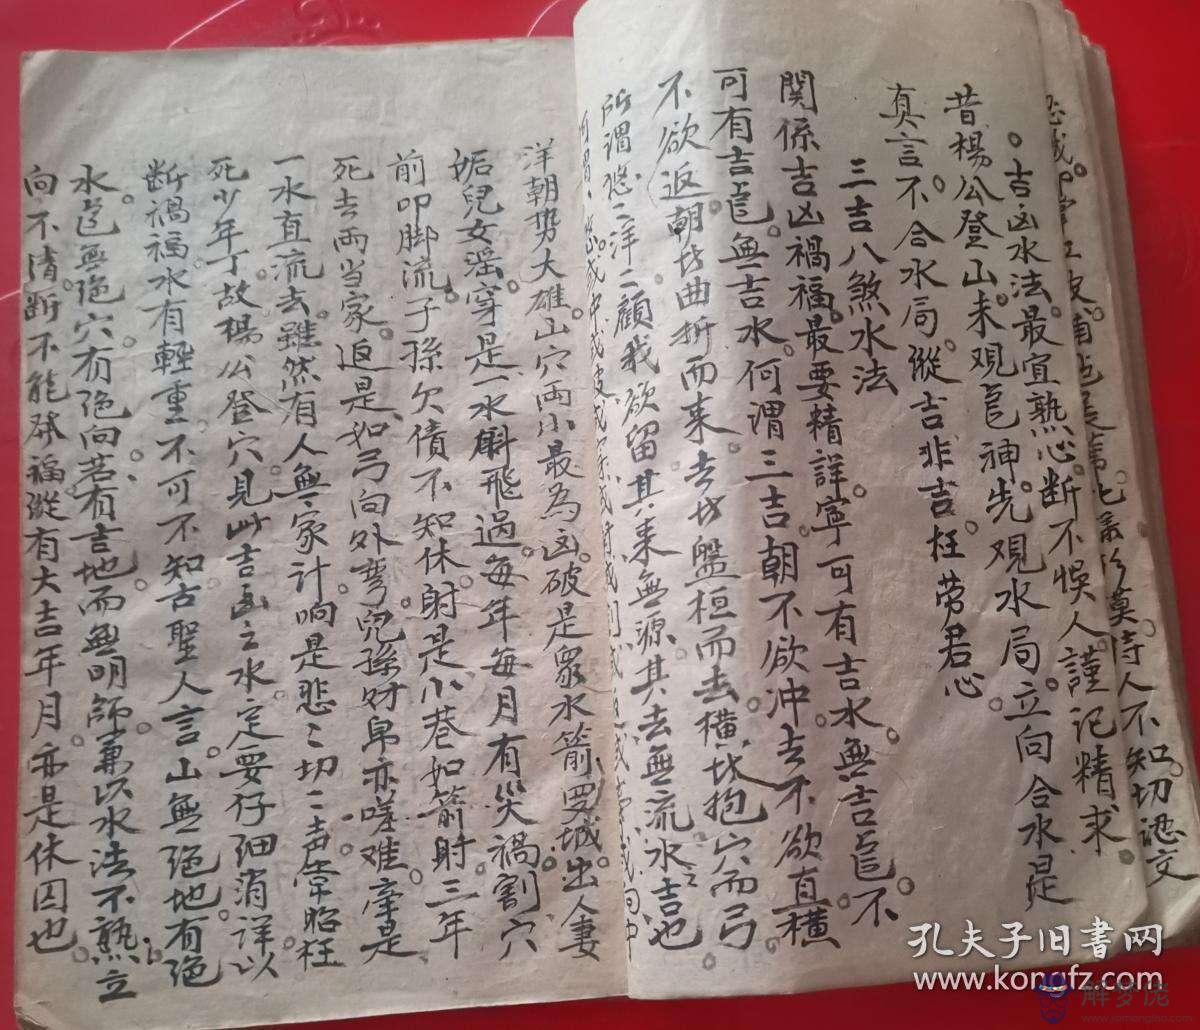 吉凶水法。最宜熟心。断不悞人。謹记精求。
昔楊公登山。未观㠯神。先观水局。立向合水是
真言。不合水局。縱吉非吉。枉劳君心。
三吉八煞水法
関係吉凶禍福。最要精詳。寧可有吉水無吉㠯。不
可有吉㠯無吉水。何谓三吉。朝不欲冲。去不欲直。橫
不欲返。朝扵曲折而来。去扵盤桓而去。橫扵抱穴而弓
所谓悠二洋二顧我欲留。其来無源。其去無流。水之吉也
洋朝势大雄。山穴両小最為凶。破是眾水箭罗城。出人妻
妬兒女滛。穿是一水斛飛過。每年每月有災禍。割穴
前叩脚流。子孫欠債不知休。射是小巷如箭射。三年
死去両当家。返是如弓向外弯。兒孫财帛亦嗟难。牵是
一水直流去。雖然有人無家计。响是悲二切二声。
死少年丁。故楊公登穴。見此吉凶之水。定要仔细消详。以
断禍福。水有輕重。不可不知。古聖人言。山無絕地有絕
水。㠯無絕穴有絕向。若有吉地而無明師。兼以水法不熟。立
向不清。断不能發福。縱有大吉年月。亦是休囚也。
孔夫子旧書网
www.kongfz.com
解梦佬